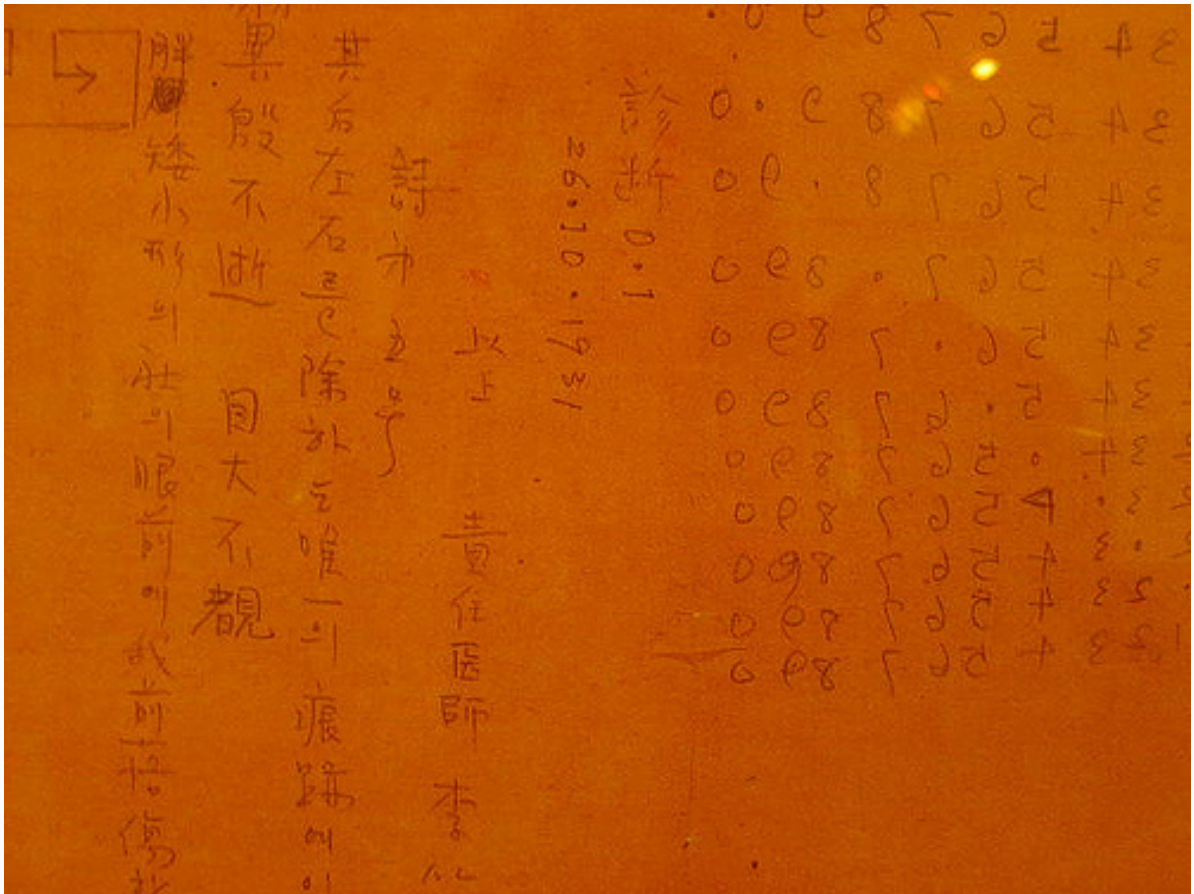 34567890·
3456789·0
345678·90
34567·890
3456·7890
345·67890
234·567890
23·4567890
2·34567890
·234567890
1234567890
診断 0·1
26·10·1931
以上 責任医師 李
詩第五号
其后左右를除하는唯一의痕跡에이
翼殷不逝 目大不覩
胖矮小形의神의眼前에我前落傷하